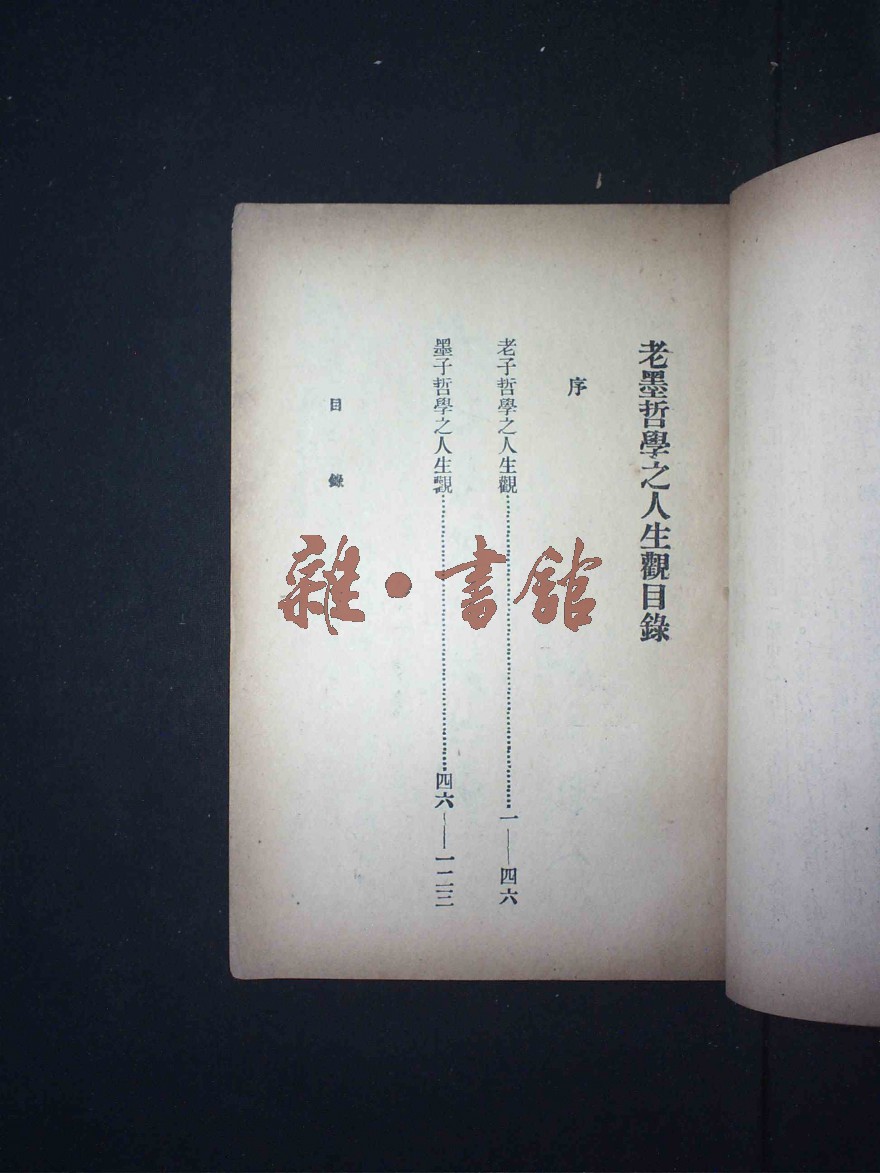 老墨哲學之人生觀目錄
序
老子哲學之人生觀……一——四六
墨子哲學之人生觀……四六——一二三
目錄
雜·書館